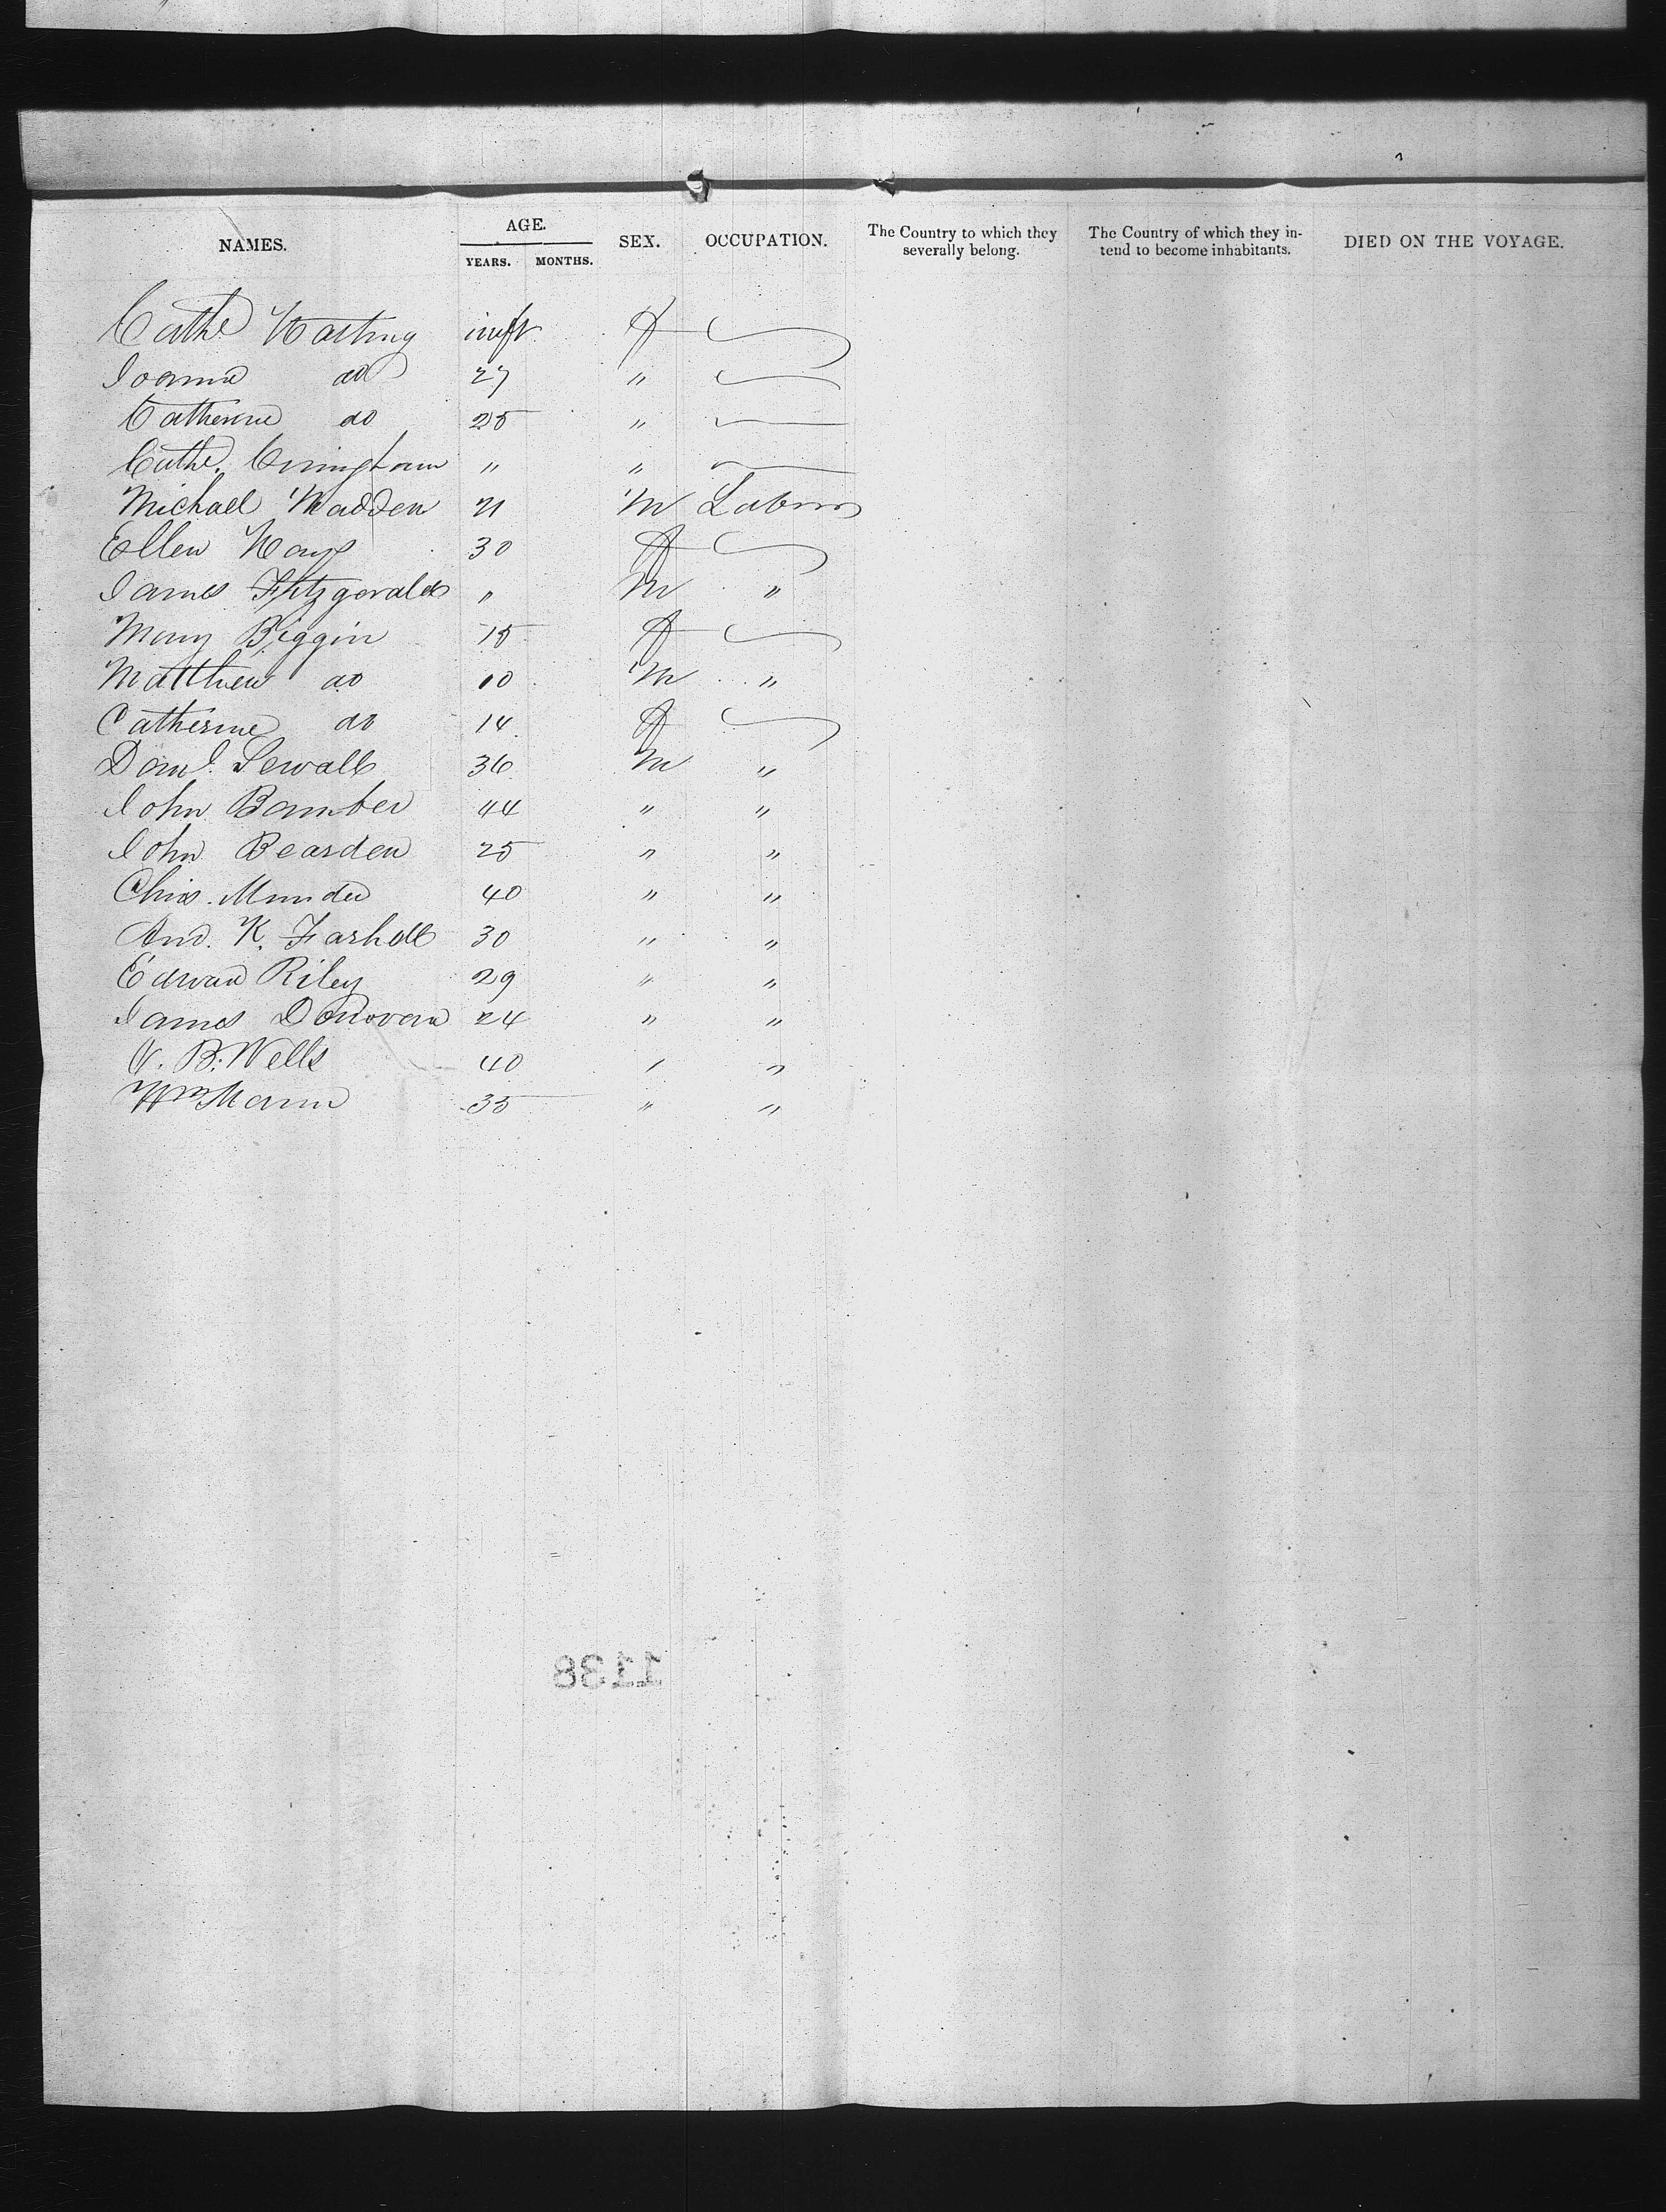 NAMES. AGE. YEARS. MONTHS. SEX. OCCUPATION. The Country to which they severally belong. The Country of which they intend to become inhabitants. DIED ON THE VOYAGE.
Cathe inft f
Joanna do 27 "
Catherine do 25 "
Cathe. " "
Michael Madden 21 M Labour
Ellen Hays 30 f
James Fitzgerald " M "
Mary Biggin 15 f
Matthew do 10 M "
Catherine do 14 f
Danl. Sewall 36 M "
John Bamber 44 " "
John Bearden 25 " "
Chris. 40 " "
And. K. 30 " "
Edward Riley 29 " "
James Donovan 24 " "
B. Wells 40 " "
Wm Mann 35 " "
1138